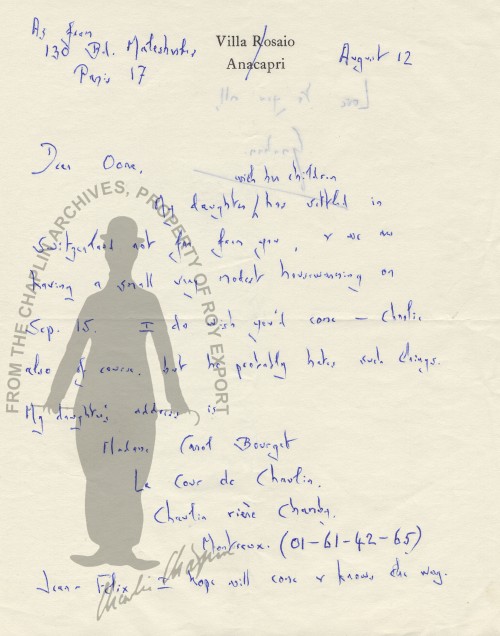 As from
130 Bd. Malesherbes
Paris 17
Villa Rosaio
Anacapri
August 12
Love to you all,
Graham.
Dear Oona,
with her children
My daughter has settled in
Switzerland not far from you, & we are
having a small very modest housewarming on
Sep. 15. I do wish you'd come – Charlie
also of course, but he probably hates such things.
My daughter's address is
Madame Carol Bourget
La Cour de Chaulin.
Chaulin rière Chamby.
Montreux. (01-61-42-65)
Jean-Felix I hope will come & knows the way.
FROM THE CHAPLIN ARCHIVES, PROPERTY OF ROY EXPORT
Charlie Chaplin